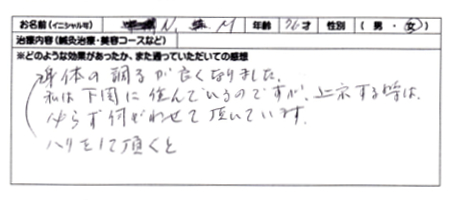 お名前(イニシャル可) N. M 年齢 76才 性別 (男・女)
治療内容(鍼灸治療・美容コースなど)
※どのような効果があったか、また通っていただいての感想
身体の調子が良くなりました。
私は下関に住んでいるのですが、上京する時は、
必らず伺わせて頂いています。
ハリをして頂くと